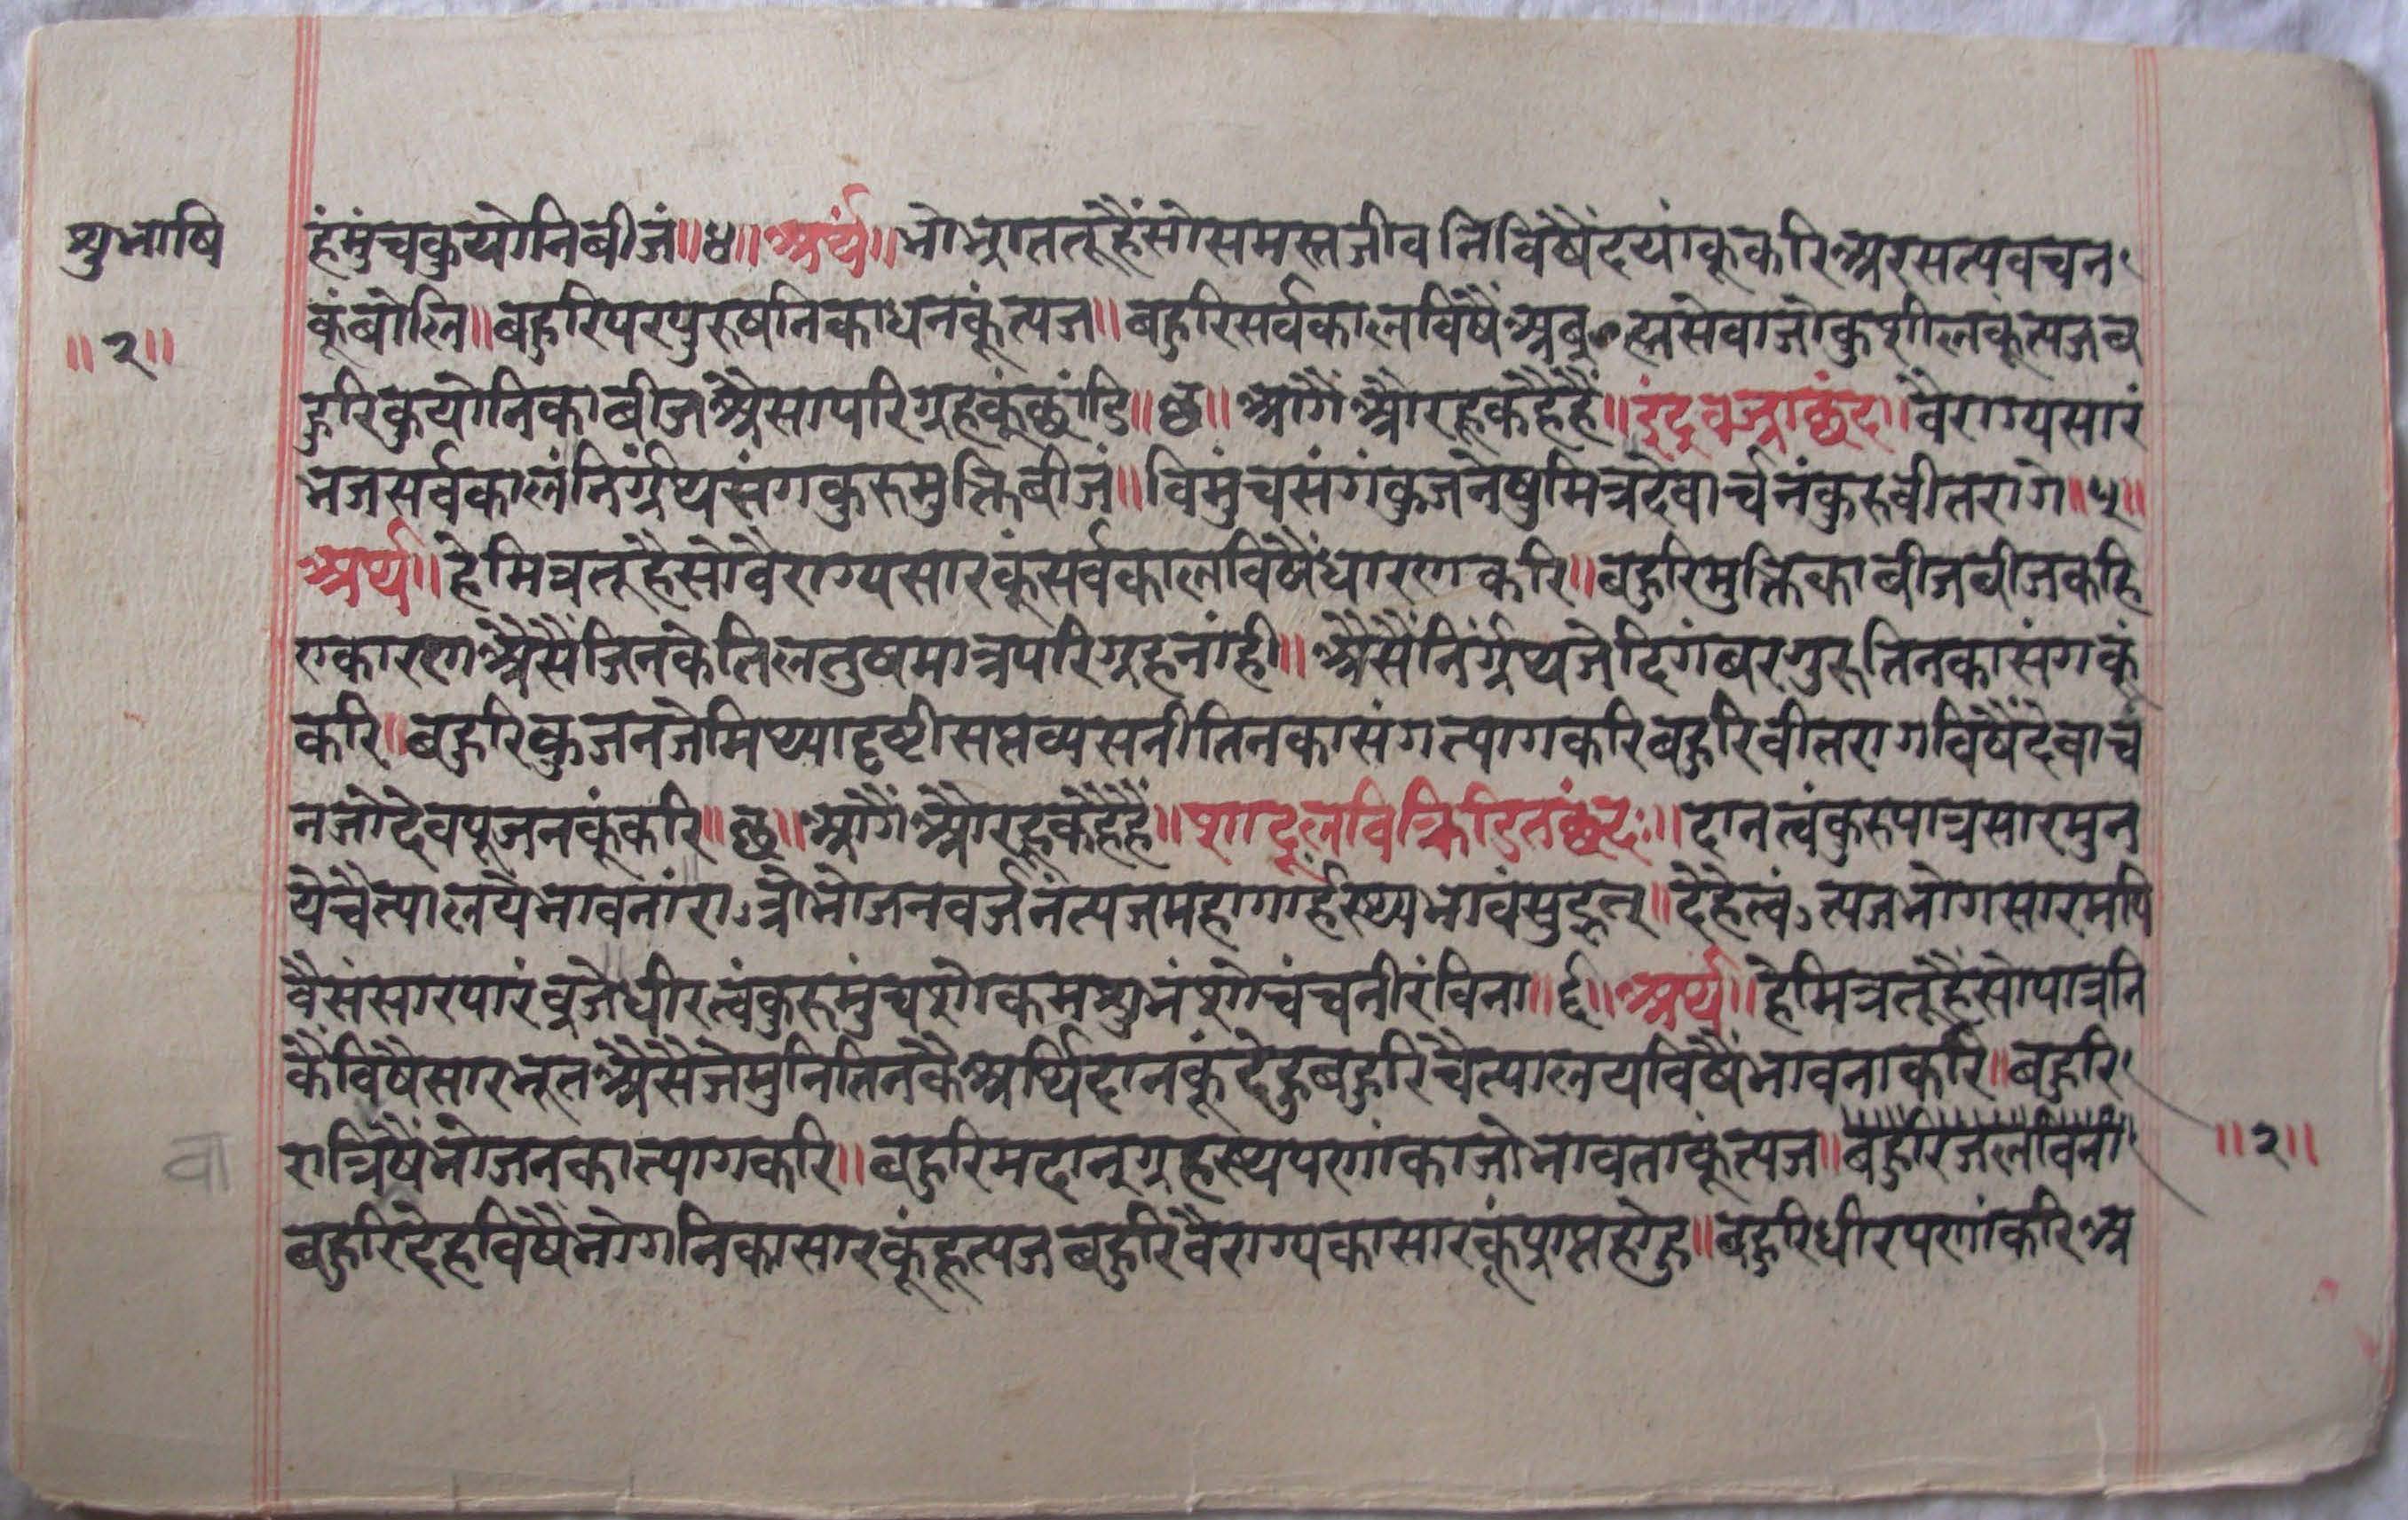 शुभाषि
॥२॥
हंमुंचकुयोनिबीजं॥४॥अर्थ॥भोभ्राततूहैंसोसमस्तजीवनिविषैंदयाकूकरिअरसत्यवचन
कूंबोलि॥बहुरिपरपुरुषनिकाधनकूंत्यज॥बहुरिसर्वकालविषैंअब्रह्मसेवाजोकुशीलकूंत्यजब
हुरिकुयोनिकाबीजअैसापरिग्रहकूंछांडि॥छ॥आगैंऔरहूकहैहैं॥इंद्रवज्राछंद॥वैराग्यसारं
भजसर्वकालंनिर्ग्रंथसंगकुरुमुक्तिबीजं॥विमुंचसंगंकुजनेषुमित्रदेवार्चनंकुरुवीतरागे॥५॥
अर्थ॥हेमित्रतूहैसोवैराग्यसारकूंसर्वकालविषैंधारणकरि॥बहुरिमुक्तिकाबीजबीजकहि
एकारणअैसैंजिनकेतिलतुषमात्रपरिग्रहनांही॥अैसैंनिर्ग्रंथजेदिगंबरगुरुतिनकासंगकूं
करि॥बहुरिकुजनजेमिथ्यादृष्टीसप्तव्यसनीतिनकासंगत्यागकरिबहुरिवीतरागविषैंदेवार्च
नजोदेवपूजनकूंकरि॥छ॥आगैंऔरहूकहैहैं॥शार्दूलविक्रिडितंछंदः॥दानत्वंकुरुपात्रसारमुन
येचैत्यालयेभावनांरात्रौभोजनवर्जनंत्यजमहागार्हस्थ्यभावंसुहृत्॥देहेत्वंत्यजभोगसारमपि
वैसंसारपारंव्रजेधीरत्वंकुरुमुंचशोकमशुभंशौचंचनीरंविना॥६॥अर्थ॥हेमित्रतूहैंसोपात्रनि
कैविषैसारभूतअैसेजेमुनितिनकैअर्थिदानकूंदेहुबहुरिचैत्यालयविषैंभावनाकरि॥बहुरि
रात्रिषैंभोजनकात्यागकरि॥बहुरिमहानगृहस्थपणांकाजोभावताकूंत्यज॥बहुरिजलविना
बहुरिदेहविषैंभोगनिकासारकूंहूत्यजबहुरिवैराग्यकासारकूंप्राप्तहोहु॥बहुरिधीरपणांकरिअ
वा
॥२॥